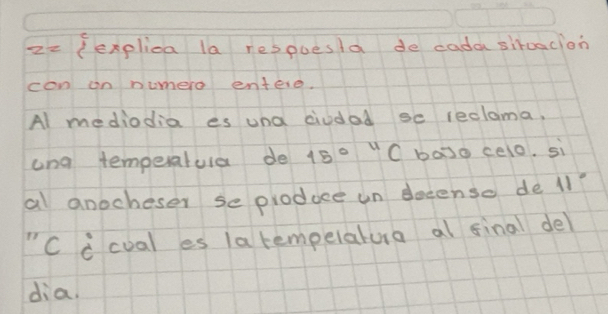 2= ¿explica la respuesla de cada situacion
con un numero entero.
Al mediodia es una ciudad se reclama.
una temperatura de 15° "C bajo celo. si
al anocheser se produce un decenso de 11°
"C ¿ cual es la temperatura al final del
dia.